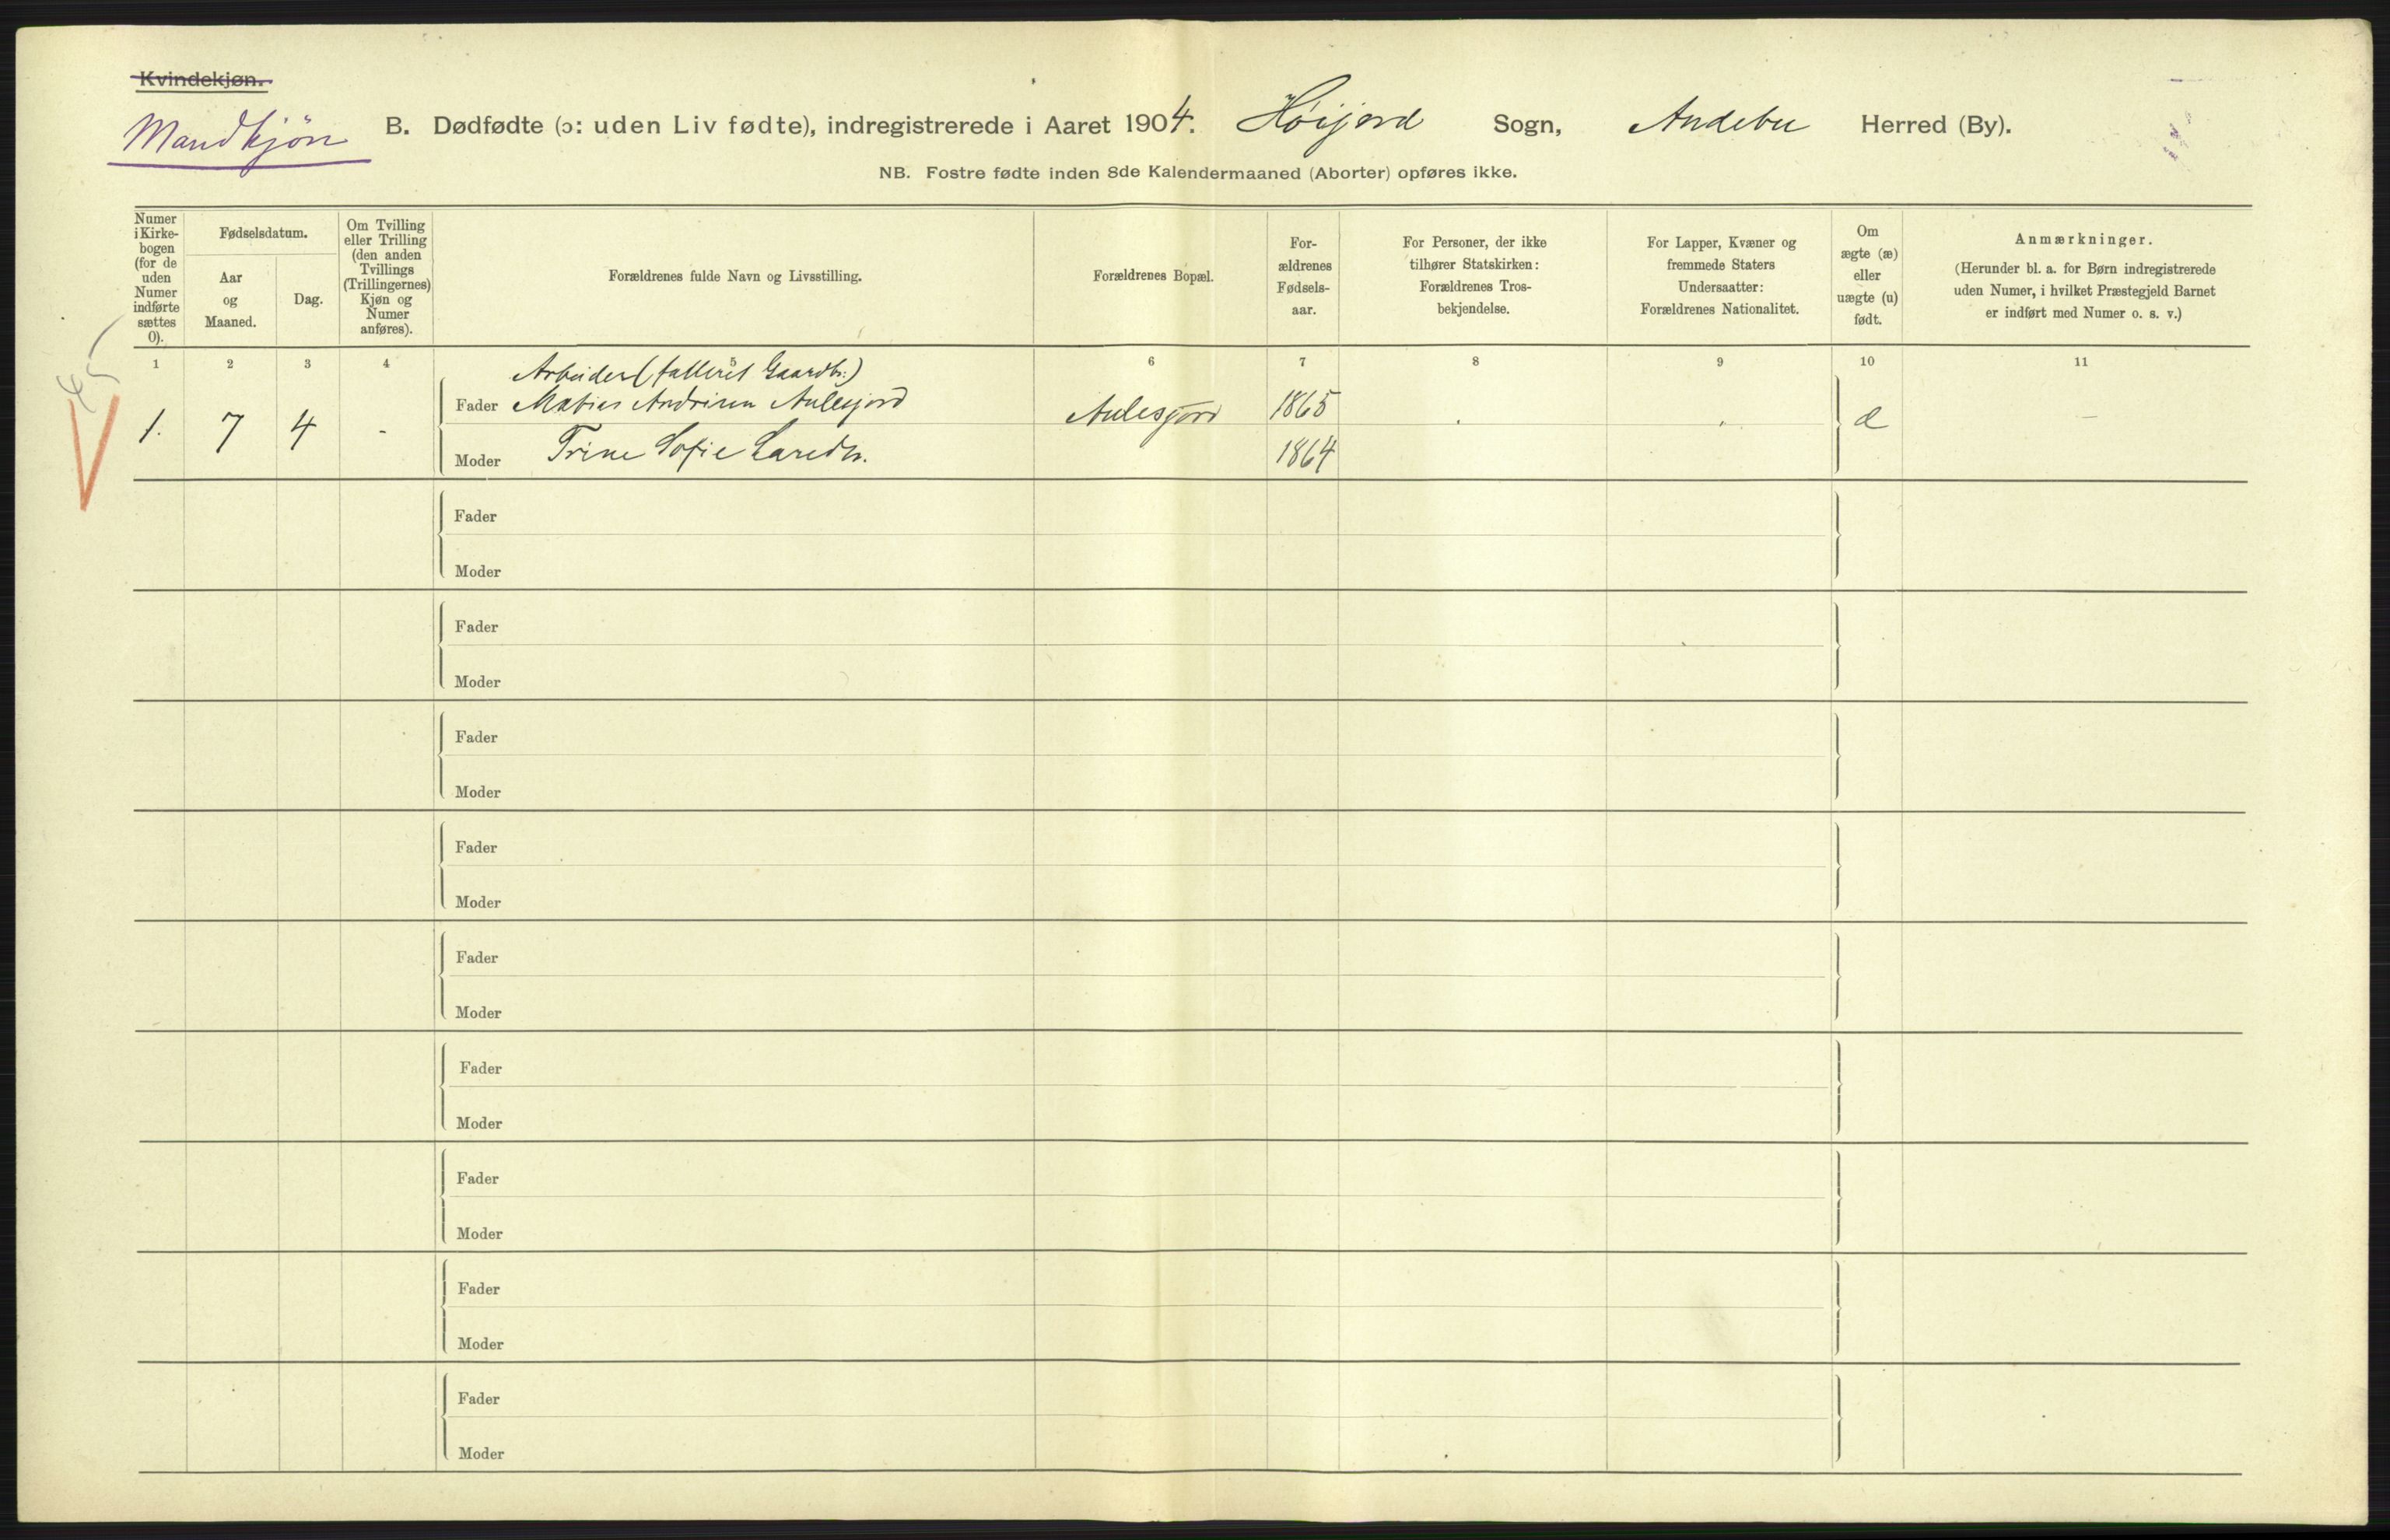 Kvindekjøn.
Mandkjön
B. Dødfødte (ɔ: uden Liv fødte), indregistrerede i Aaret 1904. Höijord Sogn, Andebu Herred (By).
NB. Fostre fødte inden 8de Kalendermaaned (Aborter) opføres ikke.
Numer
i Kirke-
bogen
(for de
uden
Numer
indførte
sættes
0).
Fødselsdatum.
Aar
og
Maaned.
Dag.
Om Tvilling
eller Trilling
(den anden
Tvillings
(Trillingernes)
Kjøn og
Numer
anføres).
Forældrenes fulde Navn og Livsstilling.
Forældrenes Bopæl.
For-
ældrenes
Fødsels-
aar.
For Personer, der ikke
tilhører Statskirken:
Forældrenes Tros-
bekjendelse.
For Lapper, Kvæner og
fremmede Staters
Undersaatter:
Forældrenes Nationalitet.
Om
ægte (æ)
eller
uægte (u)
født.
Anmærkninger.
(Herunder bl. a. for Børn indregistrerede
uden Numer, i hvilket Præstegjeld Barnet
er indført med Numer o. s. v.)
1 2 3 4 5 6 7 8 9 10 11
Arbeider (falleret Gaardbr:)
1. 7 4 - Fader Matias Andrisen Aulesjord Aulesjord 1865 æ —
Moder Trine Sofie Larsdtr. 1864
Fader
Moder
Fader
Moder
Fader
Moder
Fader
Moder
Fader
Moder
Fader
Moder
Fader
Moder
Fader
Moder
Fader
Moder